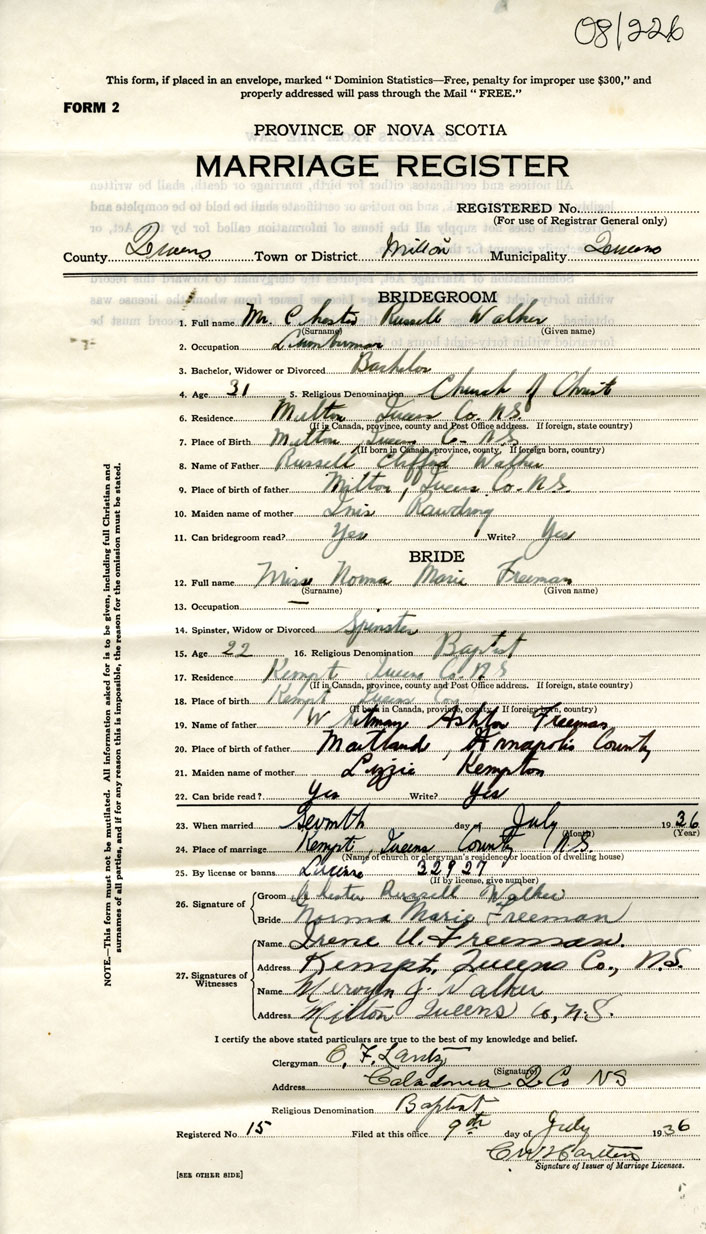 08/226
This form, if placed in an envelope, marked "Dominion Statistics—Free, penalty for improper use $300," and
properly addressed will pass through the Mail "FREE."
FORM 2
PROVINCE OF NOVA SCOTIA
MARRIAGE REGISTER
REGISTERED No.
(For use of Registrar General only)
County Queens Town or District Milton Municipality Queens
BRIDEGROOM
1. Full name Mr. Chester Russell Walker
(Surname) (Given name)
2. Occupation Lumberman
3. Bachelor, Widower or Divorced Bachelor
4. Age 31 5. Religious Denomination Church of Christ
6. Residence Milton Queens Co. N.S.
(If in Canada, province, county and Post Office address. If foreign, state country)
7. Place of Birth Milton, Queens Co. N.S.
(If born in Canada, province, county, If foreign born, country)
8. Name of Father Russell Clifford Walker
9. Place of birth of father Milton, Queens Co. N.S.
10. Maiden name of mother Inis
11. Can bridegroom read? Yes Write? Yes
BRIDE
12. Full name Miss Norma Marie Freeman
(Surname) (Given name)
13. Occupation —
14. Spinster, Widow or Divorced Spinster
15. Age 22 16. Religious Denomination Baptist
17. Residence Kempt Queens Co. N.S
(If in Canada, province, county and Post Office address. If foreign, state country)
18. Place of birth Kempt Queens Co.
(If born in Canada, province, county, If foreign, country)
19. Name of father Whitman Ashton Freeman
20. Place of birth of father Maitland, Annapolis County
21. Maiden name of mother Lizzie Kempton
22. Can bride read? Yes Write? Yes
23. When married Seventh day of July 1936
(Month) (Year)
24. Place of marriage Kempt, Queens County N.S.
(Name of church or clergyman's residence or location of dwelling house)
25. By license or banns License 32927
(If by license, give number)
26. Signature of Groom Chester Russell Walker
Bride Norma Marie Freeman
27. Signatures of Witnesses
Name Irene U. Freeman.
Address Kempt, Queens Co., N.S.
Name Mervyn J. Walker
Address Milton Queens Co, N.S.
I certify the above stated particulars are true to the best of my knowledge and belief.
Clergyman O. F. Lantz
(Signature)
Address Caledonia Q Co NS
Religious Denomination Baptist
Registered No 15 Filed at this office 9th day of July 1936
Signature of Issuer of Marriage Licenses.
[SEE OTHER SIDE]
NOTE.—This form must not be mutilated. All information asked for is to be given, including full Christian and
surnames of all parties, and if for any reason this is impossible, the reason for the omission must be stated.